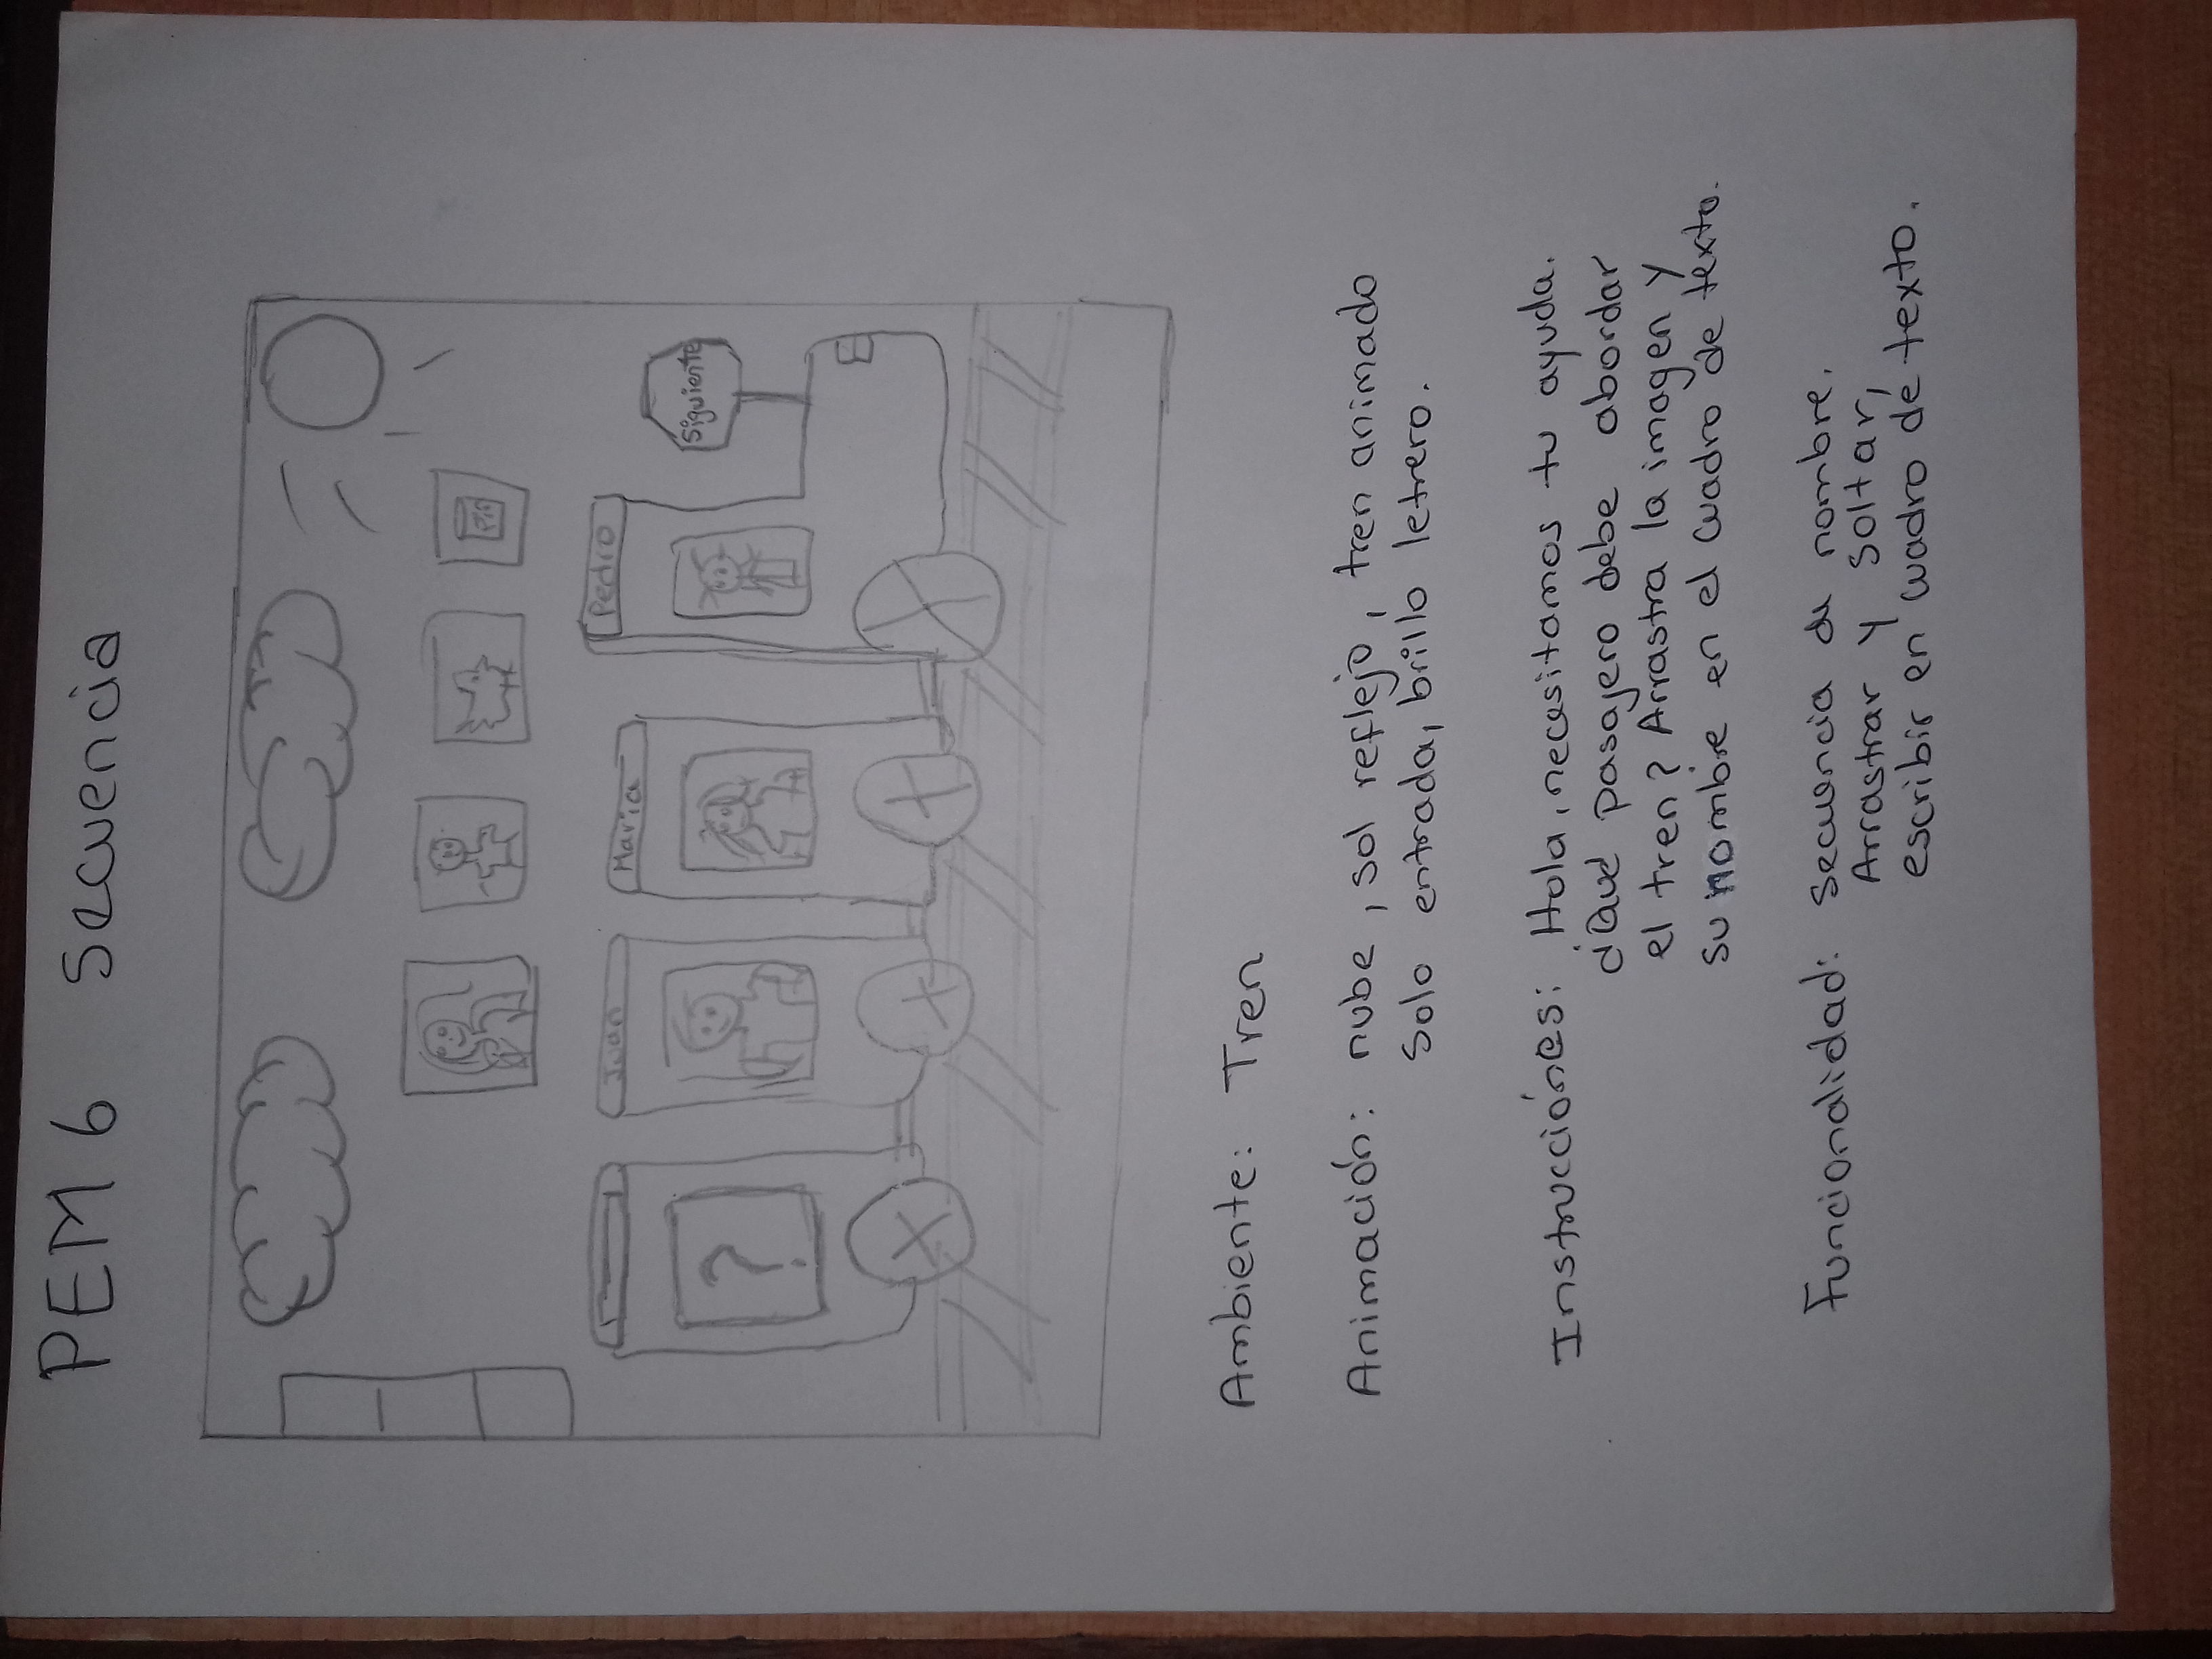 PEM 6 Secuencia
Juan
Maria
Pedro
Siguiente
?
Ambiente: Tren
Animación: nube, sol reflejo, tren animado
solo entrada, brillo letrero.
Instrucciónes: Hola, necesitamos tu ayuda.
¿Qué pasajero debe abordar
el tren? Arrastra la imagen y
su nombre en el cuadro de texto.
Funcionalidad: Secuencia de nombre.
Arrastrar y soltar,
escribir en cuadro de texto.